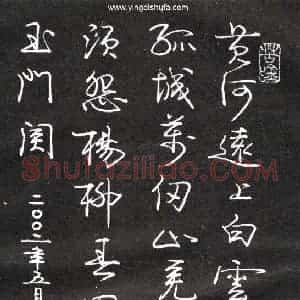 www.yingbishufa.com
黄河远上白雲
孤城萬仞山羌
须怨楊柳春
玉门関
二〇〇二年五月
Shufaziliao.com